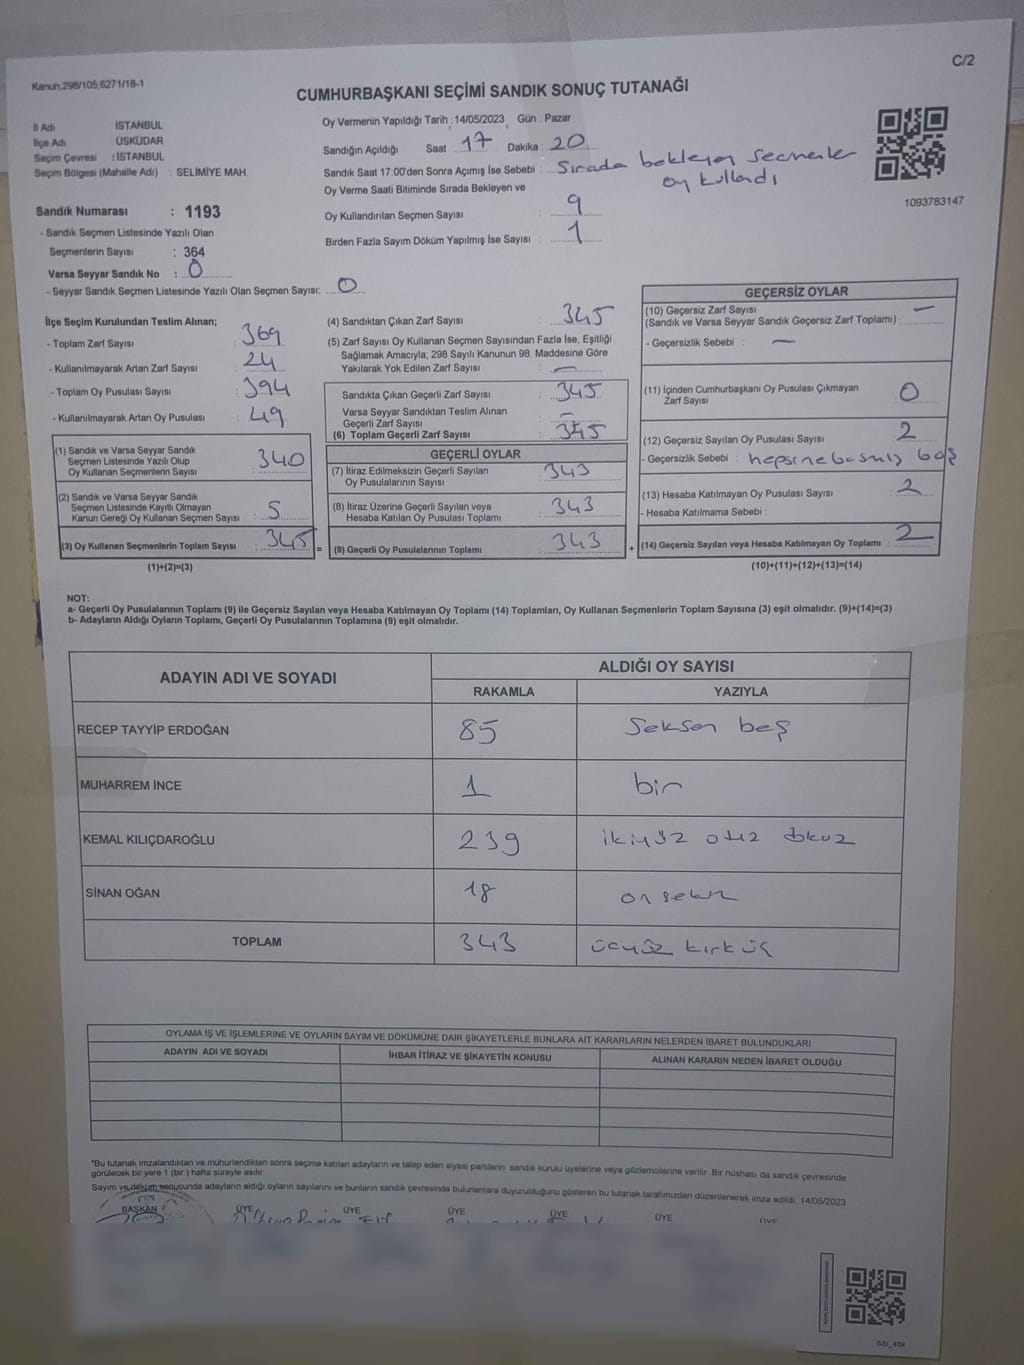 C/2
Kanun,298/105;6271/18-1
CUMHURBAŞKANI SEÇİMİ SANDIK SONUÇ TUTANAĞI
İl Adı İSTANBUL
İlçe Adı ÜSKÜDAR
Seçim Çevresi : İSTANBUL
Seçim Bölgesi (Mahalle Adı) : SELİMİYE MAH.
Sandık Numarası : 1193
- Sandık Seçmen Listesinde Yazılı Olan
Seçmenlerin Sayısı : 364
Varsa Seyyar Sandık No : 0
- Seyyar Sandık Seçmen Listesinde Yazılı Olan Seçmen Sayısı: 0
Oy Vermenin Yapıldığı Tarih : 14/05/2023 , Gün : Pazar
Sandığın Açıldığı Saat 17 Dakika : 20
Sandık Saat 17:00'den Sonra Açımış İse Sebebi : Sırada bekleyen seçmenler
oy kullandı
Oy Verme Saati Bitiminde Sırada Bekleyen ve
Oy Kullandırılan Seçmen Sayısı : 9
Birden Fazla Sayım Döküm Yapılmış İse Sayısı : 1
1093783147
İlçe Seçim Kurulundan Teslim Alınan;
- Toplam Zarf Sayısı : 369
- Kullanılmayarak Artan Zarf Sayısı : 24
- Toplam Oy Pusulası Sayısı : 394
- Kullanılmayarak Artan Oy Pusulası : 49
(1) Sandık ve Varsa Seyyar Sandık
Seçmen Listesinde Yazılı Olup
Oy Kullanan Seçmenlerin Sayısı : 340
(2) Sandık ve Varsa Seyyar Sandık
Seçmen Listesinde Kayıtlı Olmayan
Kanun Gereği Oy Kullanan Seçmen Sayısı : 5
(3) Oy Kullanan Seçmenlerin Toplam Sayısı : 345 =
(1)+(2)=(3)
(4) Sandıktan Çıkan Zarf Sayısı : 345
(5) Zarf Sayısı Oy Kullanan Seçmen Sayısından Fazla İse, Eşitliği
Sağlamak Amacıyla; 298 Sayılı Kanunun 98. Maddesine Göre
Yakılarak Yok Edilen Zarf Sayısı : —
Sandıkta Çıkan Geçerli Zarf Sayısı : 345
Varsa Seyyar Sandıktan Teslim Alınan
Geçerli Zarf Sayısı : —
(6) Toplam Geçerli Zarf Sayısı : 345
GEÇERLİ OYLAR
(7) İtiraz Edilmeksizin Geçerli Sayılan
Oy Pusulalarının Sayısı : 343
(8) İtiraz Üzerine Geçerli Sayılan veya
Hesaba Katılan Oy Pusulası Toplamı : 343
(9) Geçerli Oy Pusulalarının Toplamı : 343 +
GEÇERSİZ OYLAR
(10) Geçersiz Zarf Sayısı
(Sandık ve Varsa Seyyar Sandık Geçersiz Zarf Toplamı) : —
- Geçersizlik Sebebi : —
(11) İçinden Cumhurbaşkanı Oy Pusulası Çıkmayan
Zarf Sayısı : 0
(12) Geçersiz Sayılan Oy Pusulası Sayısı : 2
- Geçersizlik Sebebi : hepsine basmış boş
(13) Hesaba Katılmayan Oy Pusulası Sayısı : 2
- Hesaba Katılmama Sebebi :
(14) Geçersiz Sayılan veya Hesaba Katılmayan Oy Toplamı : 2
(10)+(11)+(12)+(13)=(14)
NOT:
a- Geçerli Oy Pusulalarının Toplamı (9) ile Geçersiz Sayılan veya Hesaba Katılmayan Oy Toplamı (14) Toplamları, Oy Kullanan Seçmenlerin Toplam Sayısına (3) eşit olmalıdır. (9)+(14)=(3)
b- Adayların Aldığı Oyların Toplamı, Geçerli Oy Pusulalarının Toplamına (9) eşit olmalıdır.
ADAYIN ADI VE SOYADI ALDIĞI OY SAYISI
RAKAMLA YAZIYLA
RECEP TAYYİP ERDOĞAN 85 Seksen beş
MUHARREM İNCE 1 bir
KEMAL KILIÇDAROĞLU 239 ikiyüz otuz dokuz
SİNAN OĞAN 18 on sekiz
TOPLAM 343 üçyüz kırküç
OYLAMA İŞ VE İŞLEMLERİNE VE OYLARIN SAYIM VE DÖKÜMÜNE DAİR ŞİKAYETLERLE BUNLARA AİT KARARLARIN NELERDEN İBARET BULUNDUKLARI
ADAYIN ADI VE SOYADI İHBAR İTİRAZ VE ŞİKAYETİN KONUSU ALINAN KARARIN NEDEN İBARET OLDUĞU
*Bu tutanak imzalandıktan ve mühürlendikten sonra seçime katılan adayların ve talep eden siyasi partilerin sandık kurulu üyelerine veya gözlemcilerine verilir. Bir nüshası da sandık çevresinde
görülecek bir yere 1 (bir ) hafta süreyle asılır.
Sayım ve döküm sonucunda adayların aldığı oyların sayılarını ve bunların sandık çevresinde bulunanlara duyurulduğunu gösteren bu tutanak tarafımızdan düzenlenerek imza edildi. 14/05/2023
BAŞKAN ÜYE ÜYE ÜYE ÜYE ÜYE ÜYE